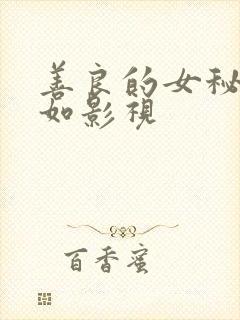 善良的女秘
如影视
百香蜜